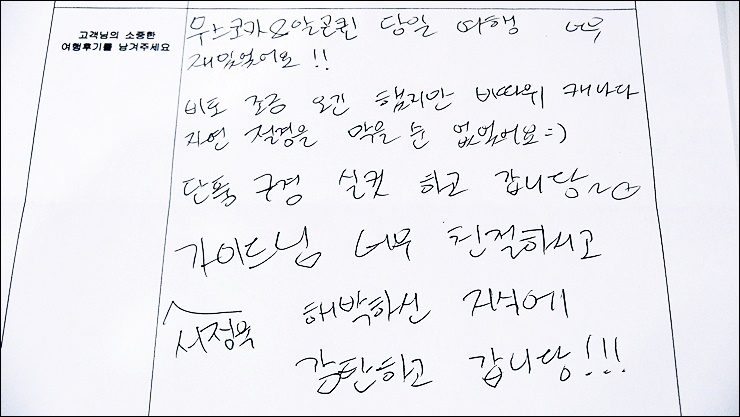 고객님의 소중한
여행후기를 남겨주세요
무스코카&알곤퀸 당일 여행 너무
재밌었어요!!
비도 조금 오긴 했지만 비따위 캐나다
자연 절경을 막을 순 없었어요:)
단풍 구경 실컷 하고 갑니당~
가이드님 너무 친절하시고
서정욱 해박하신 지식에
감탄하고 갑니당!!!